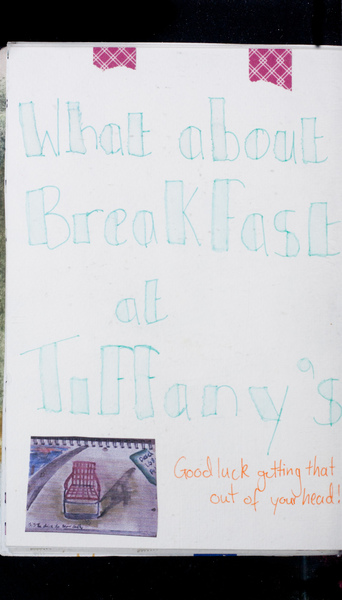 What about
Breakfast
at
Tiffany's
Good luck getting that
out of your head!